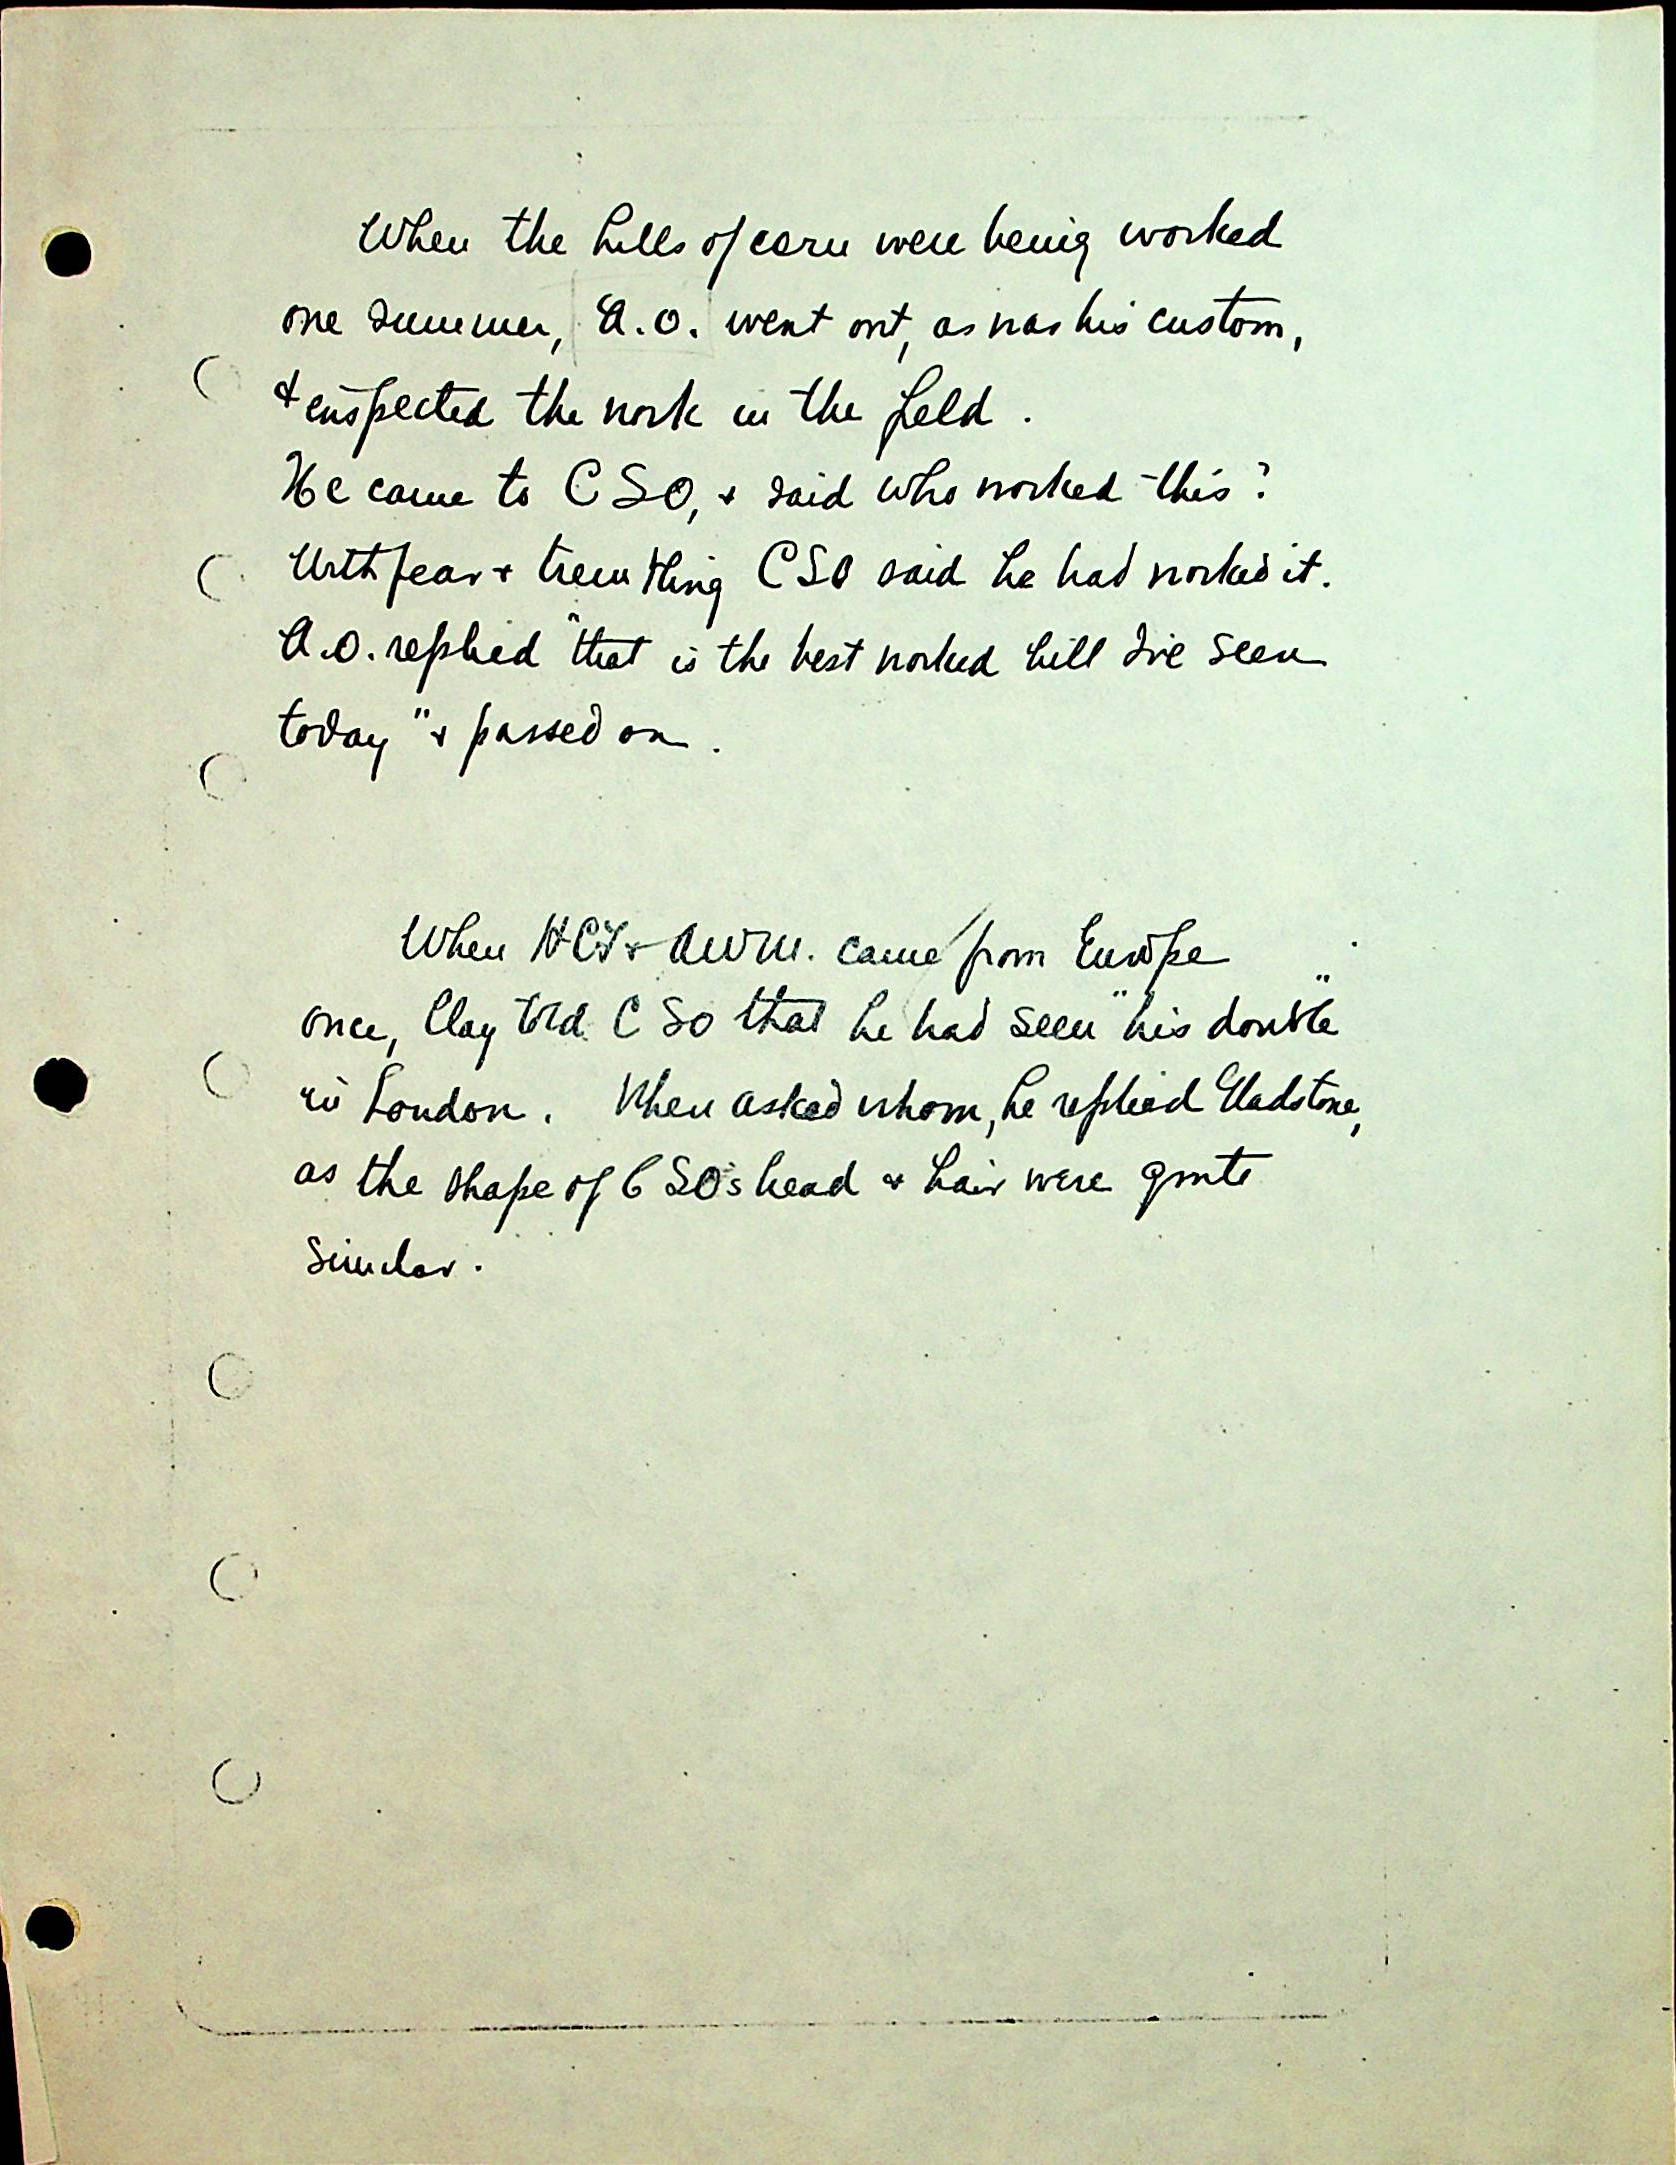 When the hills of corn were being worked
one summer, A.O. went out, as was his custom,
& inspected the work in the field.
He came to CSO, & said who worked this?
With fear & trembling CSO said he had worked it.
A.O. replied "that is the best worked hill I've seen
today" & passed on.
When HCT & AWM. came from Europe
once, Clay told CSO that he had seen "his double"
in London. When asked whom, he replied Gladstone,
as the shape of CSO's head & hair were quite
similar.